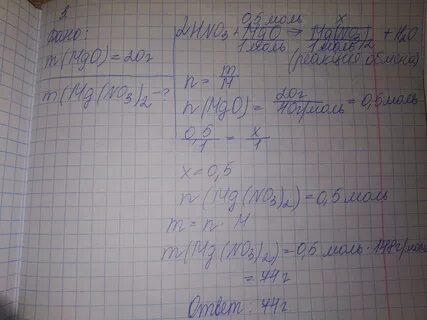 2
Дано:
m(MgO)=20г
m(Mg(NO₃)₂-?
0,5 моль x
2HNO₃+MgO→Mg(NO₃)₂+H₂O
1 моль 1 моль
(реакция обмена)
n=m/M
n(MgO)=20г/40г/моль=0,5моль
0,5/1=x/1
x=0,5
n(Mg(NO₃)₂)=0,5моль
m=n·M
m(Mg(NO₃)₂)=0,5 моль·148г/моль
=74г
Ответ: 74г